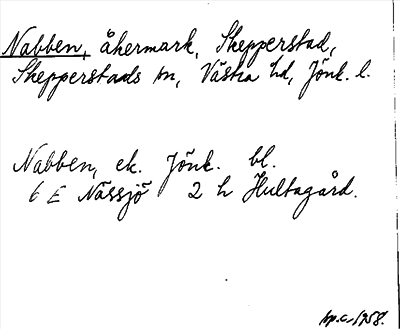 Nabben, åkermark, Skepperstad,
Skepperstads sn, Västra hd, Jönk. l.
Nabben, ek. Jönk. bl.
6 E Nässjö 2 h Hultagård.
1958.